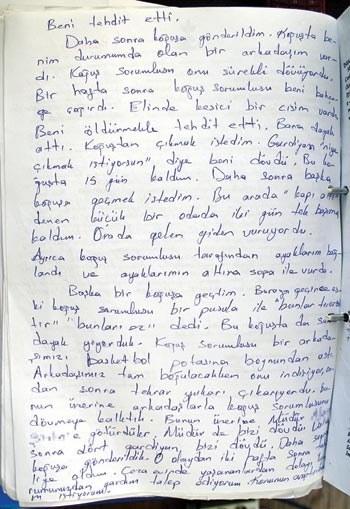 Beni tehdit etti.
Daha sonra koğuşa gönderildim. Koğuşta be-
nim durumumda olan bir arkadaşım var-
dı. Koğuş sorumlusu onu sürekli dövüyordu.
Bir hafta sonra koğuş sorumlusu beni bahçe-
ye çağırdı. Elinde kesici bir cisim vardı
Beni öldürmekle tehdit etti. Bana dayak
attı. Koğuştan çıkmak istedim. Gardiyan "niye
çıkmak istiyorsun" diye beni dövdü. Bu ko-
ğuşta 15 gün kaldım. Daha sonra başka
koğuşa geçmek istedim. Bu arada "kapı altı"
denen küçük bir odada iki gün tek başıma
kaldım. Orada gelen giden vuruyordu.
Ayrıca koğuş sorumlusu tarafından ayaklarım bağ-
landı ve ayaklarımın altına sopa ile vurdu.
Başka bir koğuşa geçtim. Buraya geçince es-
ki koğuş sorumlusu bir pusula ile "bunlar
"bunları ez" dedi. Bu koğuşta da
dayak yiyorduk. Koğuş sorumlusu bir arkada-
şımızı basketbol potasına boynundan astı.
Arkadaşımız tam boğulacakken onu indiriyor
dan sonra tekrar yukarı çıkarıyordu. Bu-
nun üzerine arkadaşlarla koğuş sorumlusunu
dövmeye kalktık. Bunun üzerine Müdür
götürdüler. Müdür de bizi dövdü. Daha
sonra dört gardiyan bizi dövdü. Daha
koğuşa gönderildik. O olaydan iki hafta sonra
oldum. Ceza evinde yaşananlardan dolayı
yardım talep ediyorum. Konunun
istiyorum.